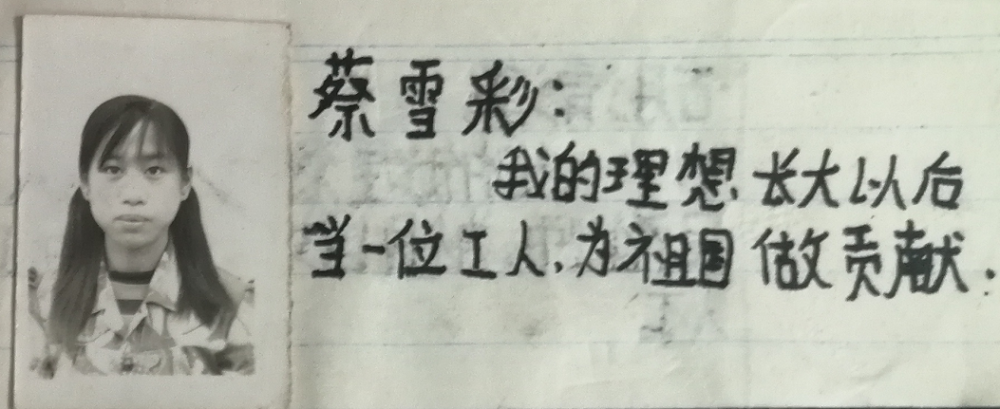 蔡雪彩:
我的理想长大以后
当一位工人、为祖国做贡献.